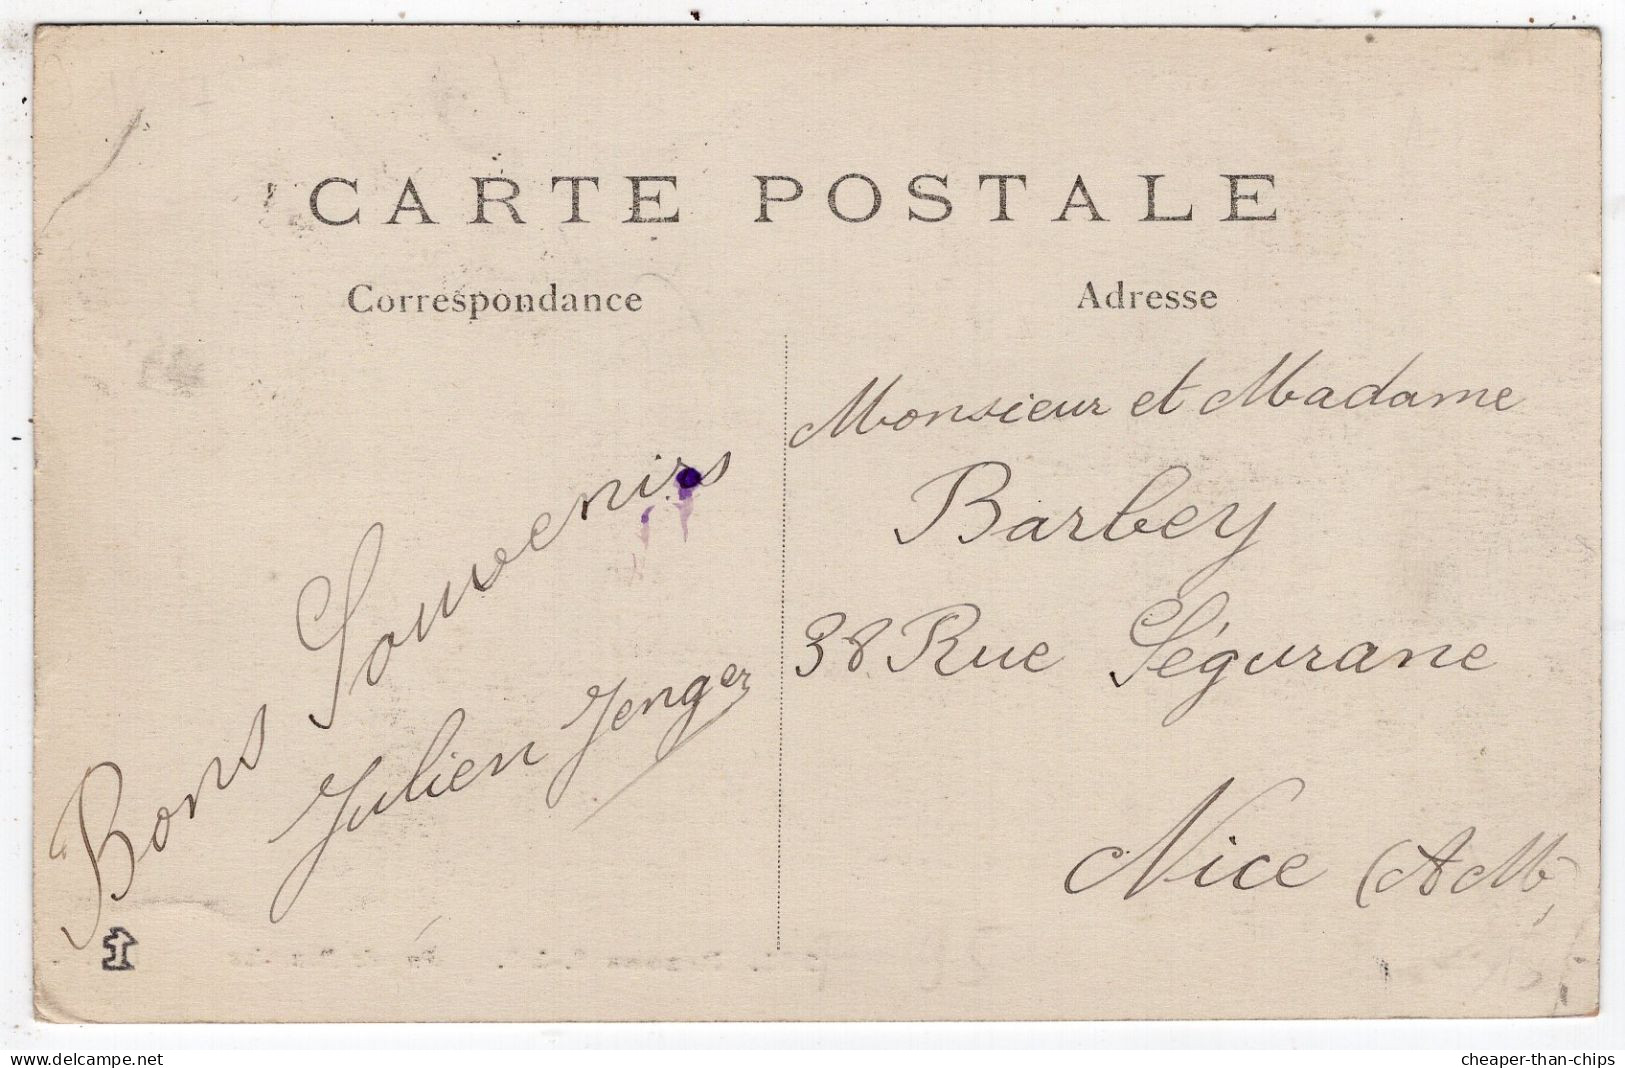 CARTE POSTALE
Correspondance
Adresse
Bons Souvenirs
Julien Jenger
Monsieur et Madame
Barbey
38 Rue Ségurane
Nice (AM)
1
www.delcampe.net
cheaper-than-chips